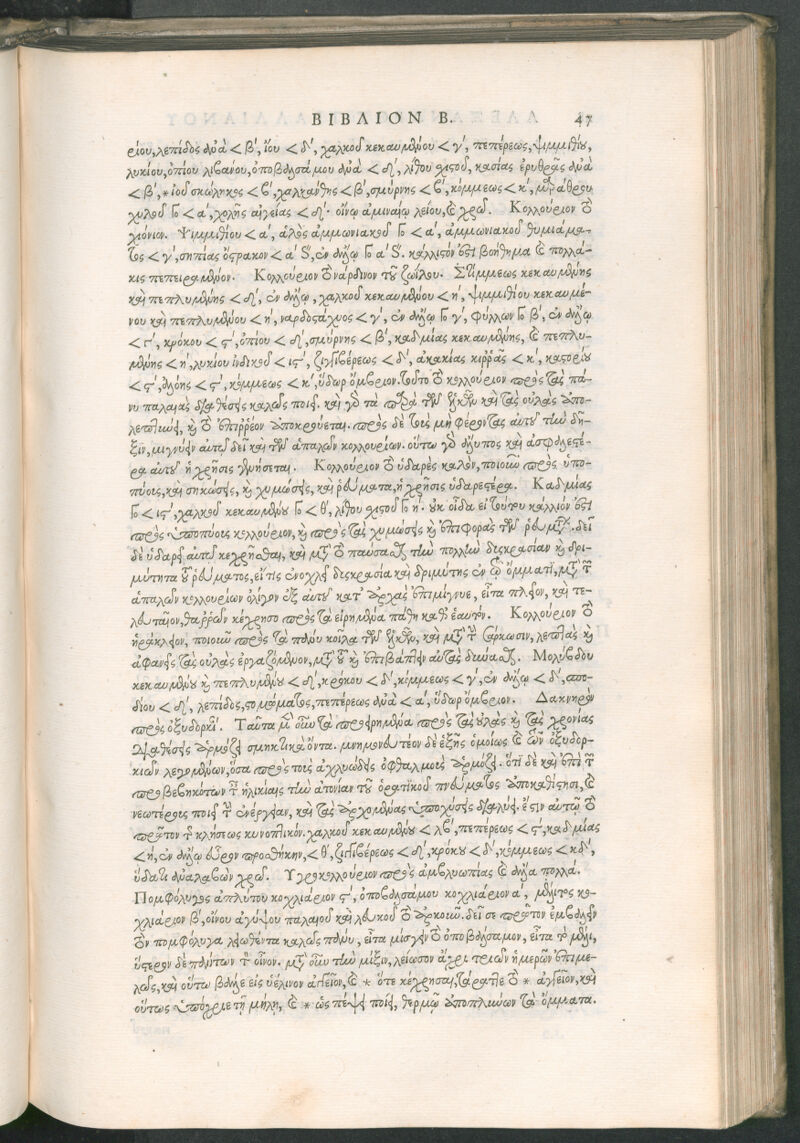 ΒΙΒΛΙΟΝ Β. 47
ρίου, λεπίδος ἀνὰ < β΄, ἰοῦ < δ΄, χαλκοῦ κεκαυμένου < γ΄, πεπέρεως, ψιμμιθίου,
λυκίου, ὀπίου λιβάνου, ὀποβαλσάμου ἀνὰ < η΄, λίθου χιςοῦ, κασίας ἐρυθρᾶς ἀνὰ
< β΄, * ἰοῦ σκώληκος < β΄, χαλκάνθης < β΄, σμύρνης < β΄, κόμμεως < κ΄, μαράθρου
χυλοῦ Γο < α΄, χολῆς αἰγείας < η΄· οἴνῳ ἀμιναίῳ λείου, καὶ χρῶ. Κολλούριον τὸ
χιόνιον. Ψιμμιθίου < α΄, ἁλὸς ἀμμωνιακοῦ Γο < α΄, ἀμμωνιακοῦ θυμιάμα-
τος < γ΄, σηπίας ὄςρακον < α΄ S, ἐν ἄλλῳ Γο α΄ S. κάλλιςόν ἐςι βοήθημα καὶ πολλά-
κις πεπειραμένον. Κολλούριον τὸ νάρδινον τοῦ ζωΐλου. Στίμμεως κεκαυμένης
καὶ πεπλυμένης < η΄, ἐν ἄλλῳ, χαλκοῦ κεκαυμένου < η΄, ψιμμιθίου κεκαυμέ-
νου καὶ πεπλυμένου < η΄, ναρδοςάχυος < γ΄, ἐν ἄλλῳ Γο γ΄, φύλλων Γο β΄, ἐν ἄλλῳ
< ς΄, κρόκου < ς΄, ὀπίου < η΄, σμύρνης < β΄, καδμίας κεκαυμένης, καὶ πεπλυ-
μένης < η΄, λυκίου ἰνδικοῦ < ις΄, ζιγγιβέρεως < δ΄, ἀκακίας κιῤῥᾶς < κ΄, καςορίου
< ς΄, ἀλόης < ς΄, κόμμεως < κ΄, ὕδωρ ὄμβριον. τοῦτο τὸ κολλούριον πρὸς τὰς πά-
νυ παλαιὰς διαθέσεις καλῶς ποιεῖ. καὶ γὰρ τὰ περὶ τῶν ἑλκῶν καὶ τὰς οὐλὰς ἀπο-
λεπτύνει, καὶ τὸ ἐπιῤῥέον ἀποκρούεται. πρὸς δὲ τοὺς μὴ φέροντας αὐτοῦ τὴν δῆ-
ξιν, μιγνύειν αὐτῷ δεῖ καὶ τῶν ἁπαλῶν κολλουρίων. οὕτω γὰρ ἄλυπος καὶ ἀσφαλεςέ-
ρα αὐτοῦ ἡ χρῆσις γενήσεται. Κολλούριον τὸ ὑδαρὲς καλὸν, ποιοῦν πρὸς ὑπο-
πύους, καὶ σηκώσεις, καὶ χυμώσεις, καὶ ῥεύματα, ἡ χρῆσις ὑδαρεςέρα. Καδμίας
Γο < ις΄, χαλκοῦ κεκαυμένου Γο < θ΄, λίθου χιςοῦ Γο η΄. οὐκ οἶδα εἰ τούτου κάλλιόν ἐςι
πρὸς ὑποπύους κολλούριον, καὶ πρὸς τὰς χυμώσεις καὶ ἐπιφορὰς τῶν ῥευμάτων. δεῖ
δὲ ὑδαρεῖ αὐτῷ κεχρῆσθαι, καὶ μετὰ τὸ παύσασθαι τὴν πολλὴν δυσκρασίαν καὶ δρι-
μύτητα τοῦ ῥεύματος, εἴ τις ἐνοχλεῖ δυσκρασία καὶ δριμύτης ἐν τῷ ὄμματι, μετὰ τῶν
ἁπαλῶν κολλουρίων ὀλίγον ἐξ αὐτοῦ κατ᾽ ἀρχὰς ἐπιμίγνυε, εἶτα πλεῖον, καὶ τε-
λευταῖον, θαῤῥῶν κέχρησο πρὸς τὰ εἰρημένα πάθη καθ᾽ ἑαυτόν. Κολλούριον τὸ
ἡράκλειον, ποιοῦν πρὸς τὰ πάνυ κοῖλα τῶν ἑλκῶν, καὶ μετὰ τὴν σάρκωσιν, λεπτὰς καὶ
ἀφανεῖς τὰς οὐλὰς ἐργαζόμενον, μετὰ τοῦ καὶ ἐπιβάπτειν αὐτὰς δύνασθαι. Μολύβδου
κεκαυμένου καὶ πεπλυμένου < η΄, κρόκου < δ΄, κόμμεως < γ΄, ἐν ἄλλῳ < δ΄, σπο-
δίου < η΄, λεπίδος, ςομώματος, πεπέρεως ἀνὰ < α΄, ὕδωρ ὄμβριον. Δακνηρὸν
πρὸς ὀξυδορκίαν. Ταῦτα μὲν οὖν τὰ προειρημένα πρὸς τὰς οὐλὰς καὶ τὰς χρονίας
διαθέσεις ἁρμόζει σμηκτικὰ ὄντα. μνημονευτέον δὲ ἑξῆς ὁμοίως καὶ τῶν ὀξυδορ-
κικῶν λεγομένων, ὅσα πρὸς τοὺς ἀχλυώδεις ὀφθαλμοὺς ἁρμόζει. ὅτι δὲ καὶ ἐπὶ τῶν
προβεβηκότων τὴν ἡλικίαις τὴν ἀτονίαν τοῦ ὁρατικοῦ πνεύματος ἀποκαθίςησι, καὶ
νεωτέροις ποιεῖ τὴν ἐνέργειαν, καὶ τὰς ἀρχομένας ὑποχύσεις διαλύει. ἔςιν αὐτῷ τὸ
πρῶτον τῆς κλήσεως κυνοπτικόν. χαλκοῦ κεκαυμένου < λβ΄, πεπέρεως < ς΄, καδμίας
< η΄, ἐν ἄλλῳ εὗρον προσθήκην, < θ΄, ζιγγιβέρεως < η΄, κρόκου < δ΄, κόμμεως < κδ΄,
ὕδατι ἀναλαβὼν χρῶ. Ὑγροκολλούριον πρὸς ἀμβλυωπίας καὶ ἄλλα πολλά.
Πομφόλυγος ἀπλύτου κοχλιάριον ς΄, ὀποβαλσάμου κοχλιάριον α΄, μέλιτος κο-
χλιάριον β΄, οἴνου ἀγύψου παλαιοῦ καὶ λευκοῦ τὸ ἀρκοῦν. δεῖ σε πρῶτον ἐμβαλεῖν
τὸν πομφόλυγα λειωθέντα καλῶς πάνυ, εἶτα μίσγειν τὸ ὀποβάλσαμον, εἶτα τὸ μέλι,
ὕςερον δὲ πάντων τὸν οἶνον. μετὰ οὖν τὴν μίξιν, λείωσον ἄχρι τριῶν ἡμερῶν ἐπιμε-
λῶς, καὶ οὕτω βάλλε εἰς ὑέλινον ἀγγεῖον, καὶ * ὅτε κέχρησαι, τάραττε τὸ * ἀγγεῖον, καὶ
οὕτως ὑπόχριε τῇ μήλῃ, καὶ * ὡς πέψει ποιεῖ, θερμῷ ἀποπλύνων τὰ ὄμματα.